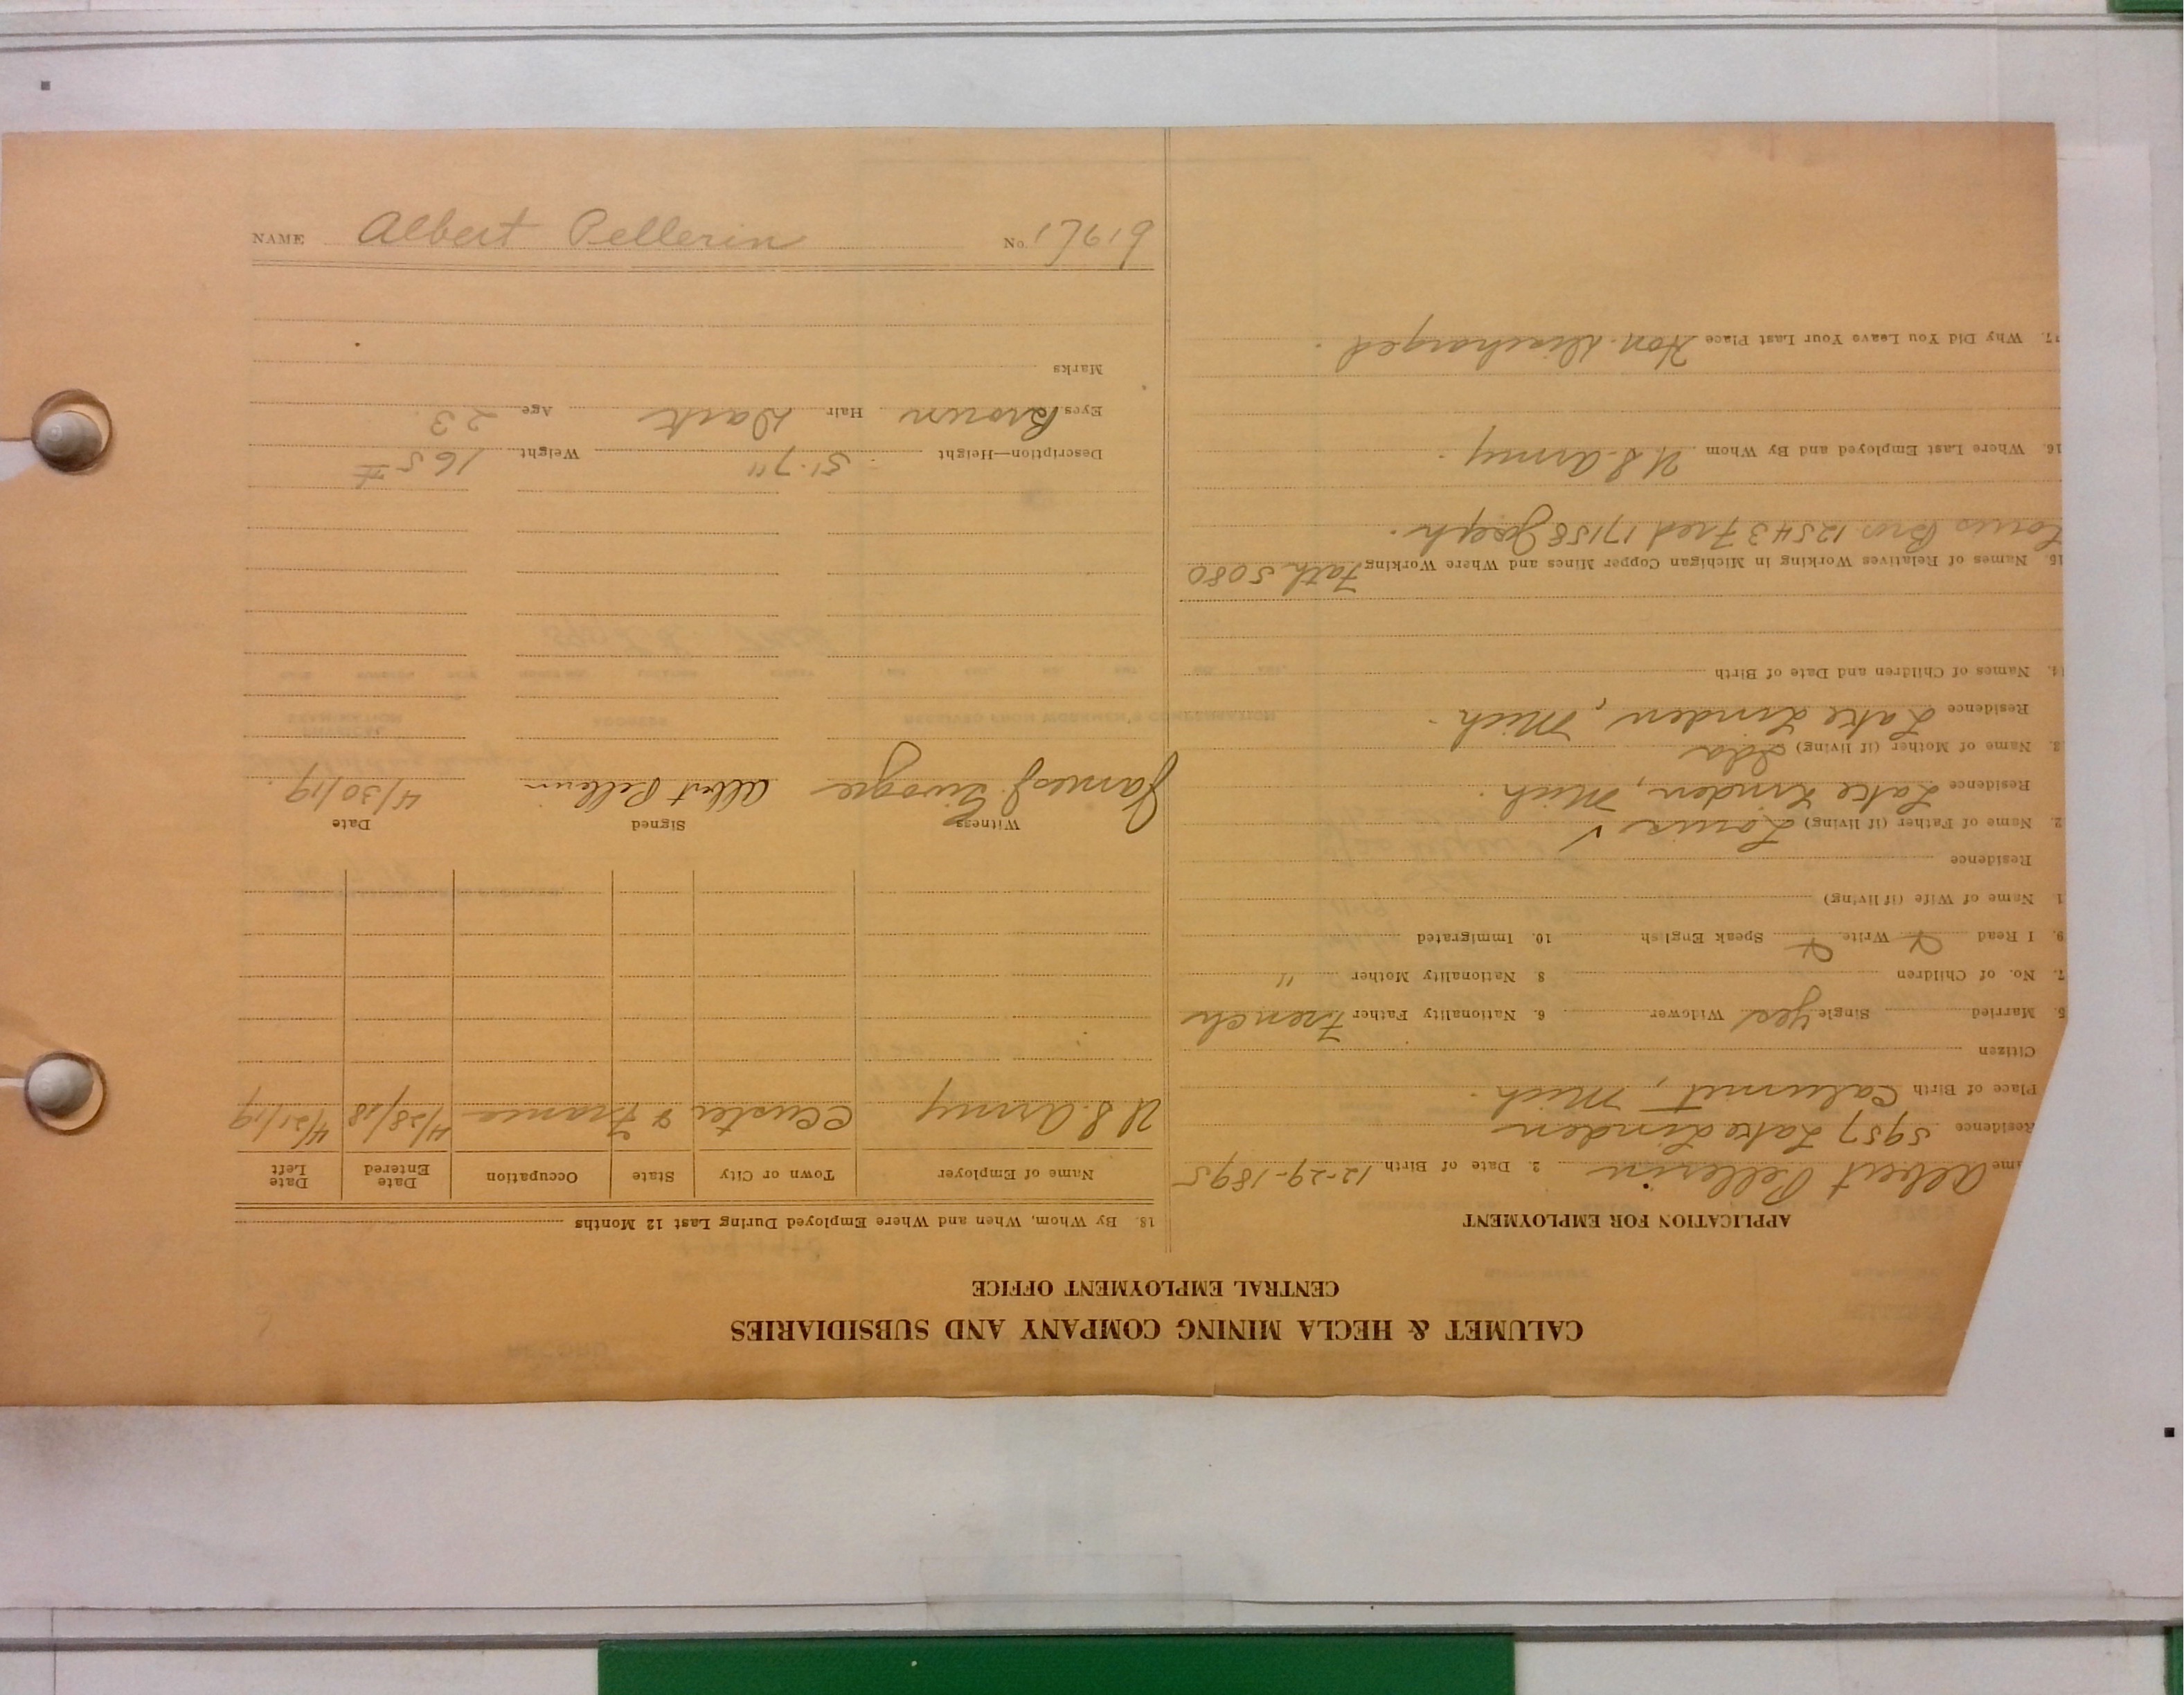 CALUMET & HECLA MINING COMPANY AND SUBSIDIARIES
CENTRAL EMPLOYMENT OFFICE
APPLICATION FOR EMPLOYMENT
ame Albert Pellerin 2. Date of Birth 12-29-1895
Residence 5957 Lake Linden
Place of Birth Calumet, Mich.
Citizen
5. Married Single yes Widower 6. Nationality Father French
7. No. of Children 8 Nationality Mother "
9. I Read Write Speak English 10. Immigrated
1 Name of Wife (if living)
Residence
2. Name of Father (if living) Louis ✓
Residence Lake Linden, Mich.
3. Name of Mother (if living) Ida
Residence Lake Linden, Mich.
14. Names of Children and Date of Birth
15. Names of Relatives Working in Michigan Copper Mines and Where Working Fath 5080
Louis Bros 12543 Fred 17158 Joseph.
16. Where Last Employed and By Whom U.S. Army.
17. Why Did You Leave Your Last Place Hon. Discharged.
18. By Whom, When and Where Employed During Last 12 Months
Name of Employer Town or City State Occupation Date Entered Date Left
U.S. Army Custer & France 4/28/18 4/21/19
Witness Signed Date
James J. Albert Pellerin 4/30/19.
Description—Height 5'.7" Weight 165 #
Eyes Brown Hair Dark Age 23.
Marks
NAME Albert Pellerin No. 17619